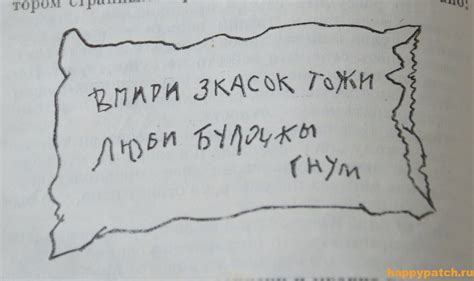 тором стран
ано!
ВПИРИ ЗКАСОК ТОЖИ
ЛЮБИ БУЛОЧКЫ
ГНУМ
happypatch.ru